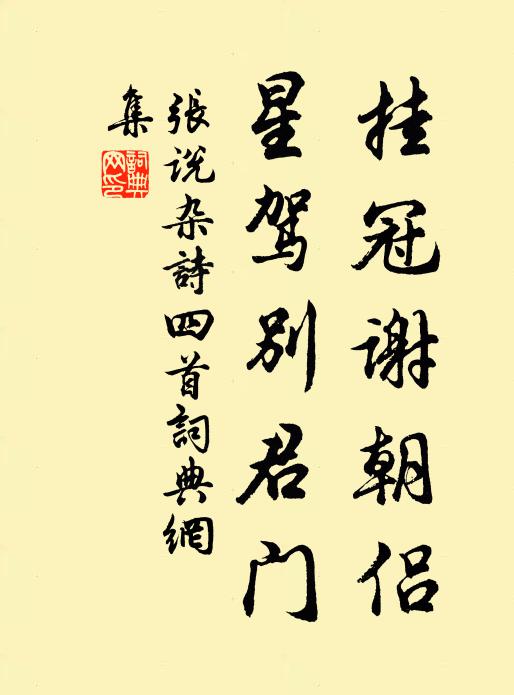 挂冠谢朝侣
星驾别君门
張说杂詩四首詞典網
集
詞典
网印